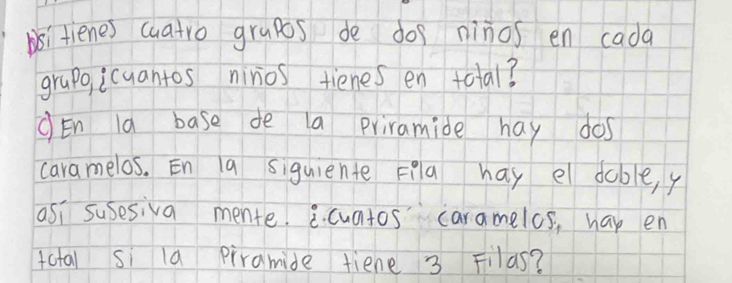 b) si tienes cuatro grupos de dos niños en cada
grupo, ¿cuantos niños tienes en total?
c) En la base de la priramide hay dos
caramelos. En la siguiente Fila hay el doble, y
así susesiva mente. ¿cuatos caramelos, hay en
total si la piramide tiene 3 Filas?